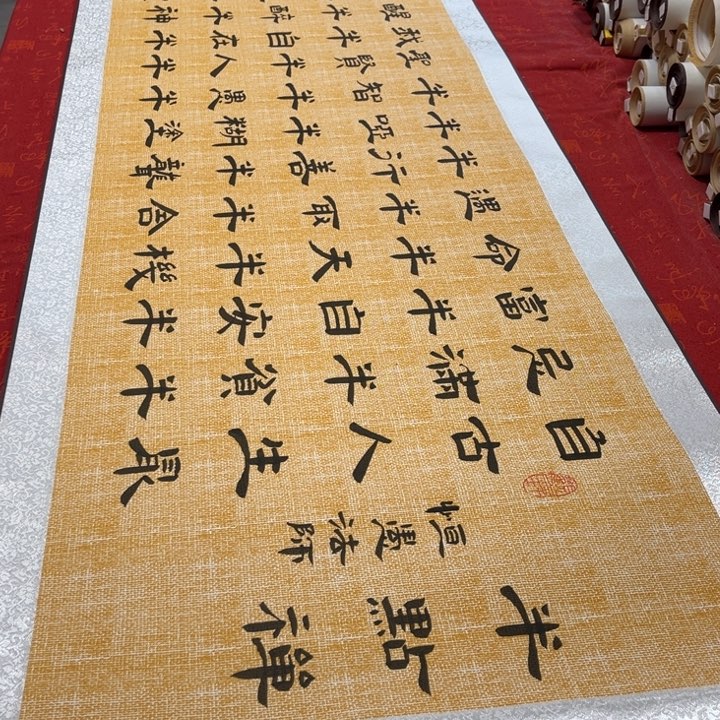 半點禪
恒愚法師
自古人生最
忌滿半貧半
富半自安半
命半天半機
遇半取半舍
半行善半聾
半啞半糊塗
半智半愚半
聖賢半人半
我半自在半
醒半醉半神